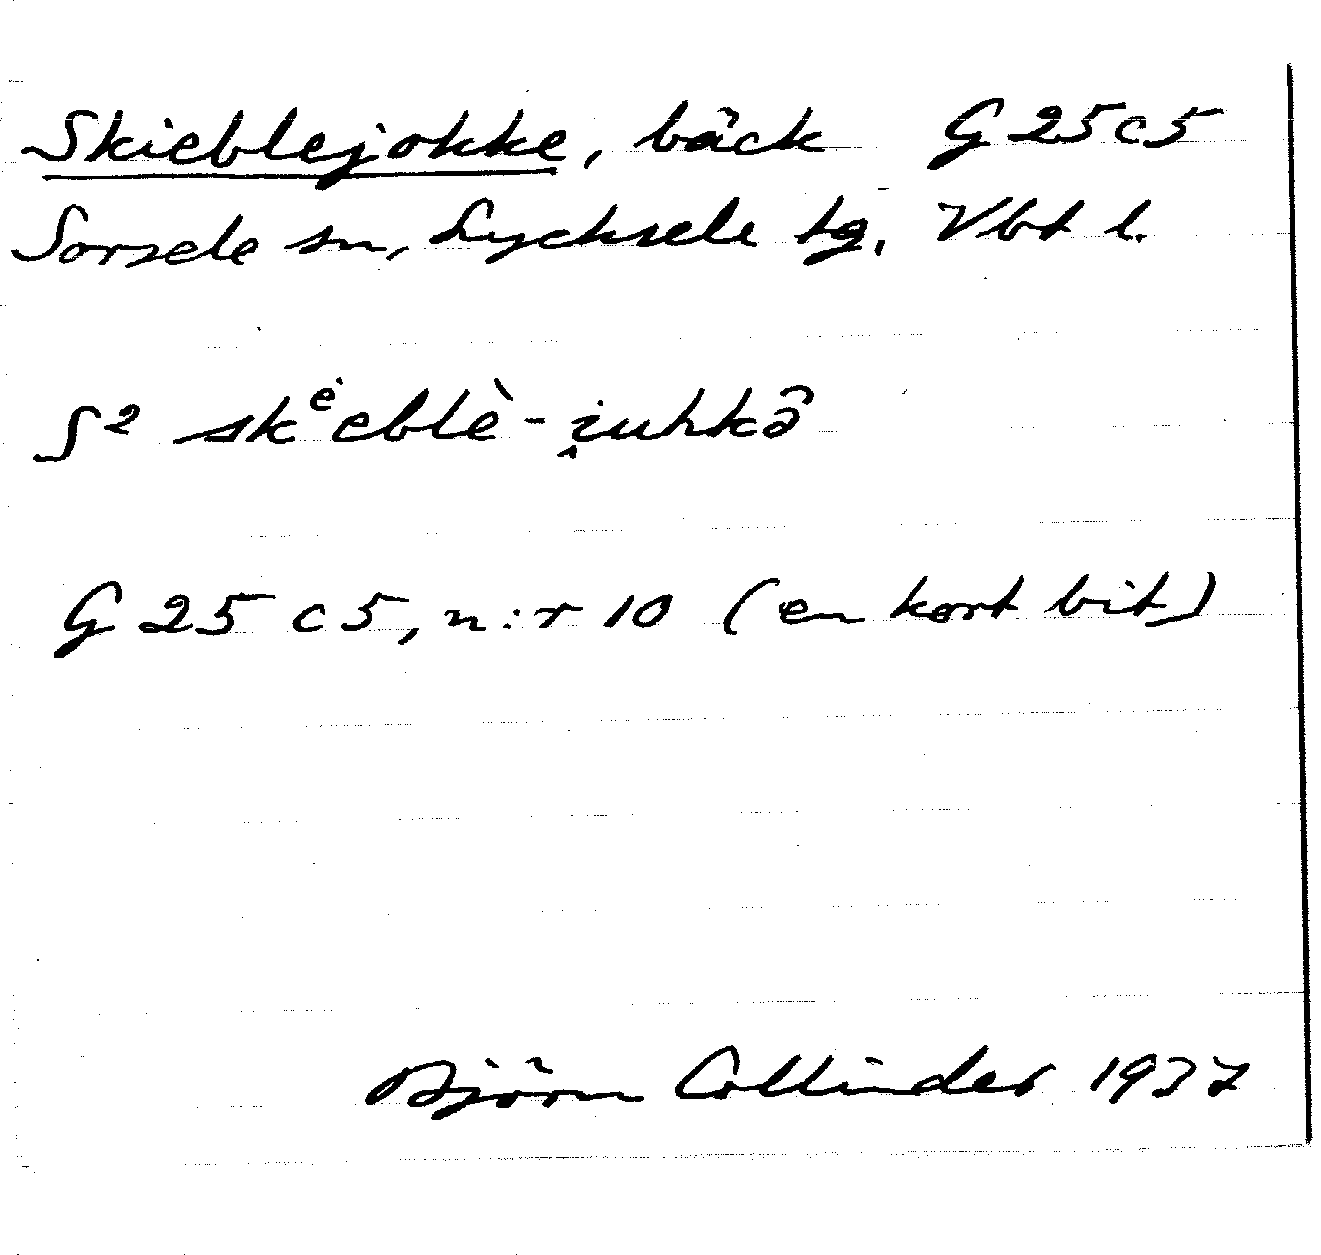 Skieblejokke, bäck G 25 c 5
Sorsele sn, Lycksele tg. Vbt l.
S² skᵉ̇eblè-i̭uhkâ
G 25 c 5, n:r 10 (en kort bit)
Björn Collinder 1937